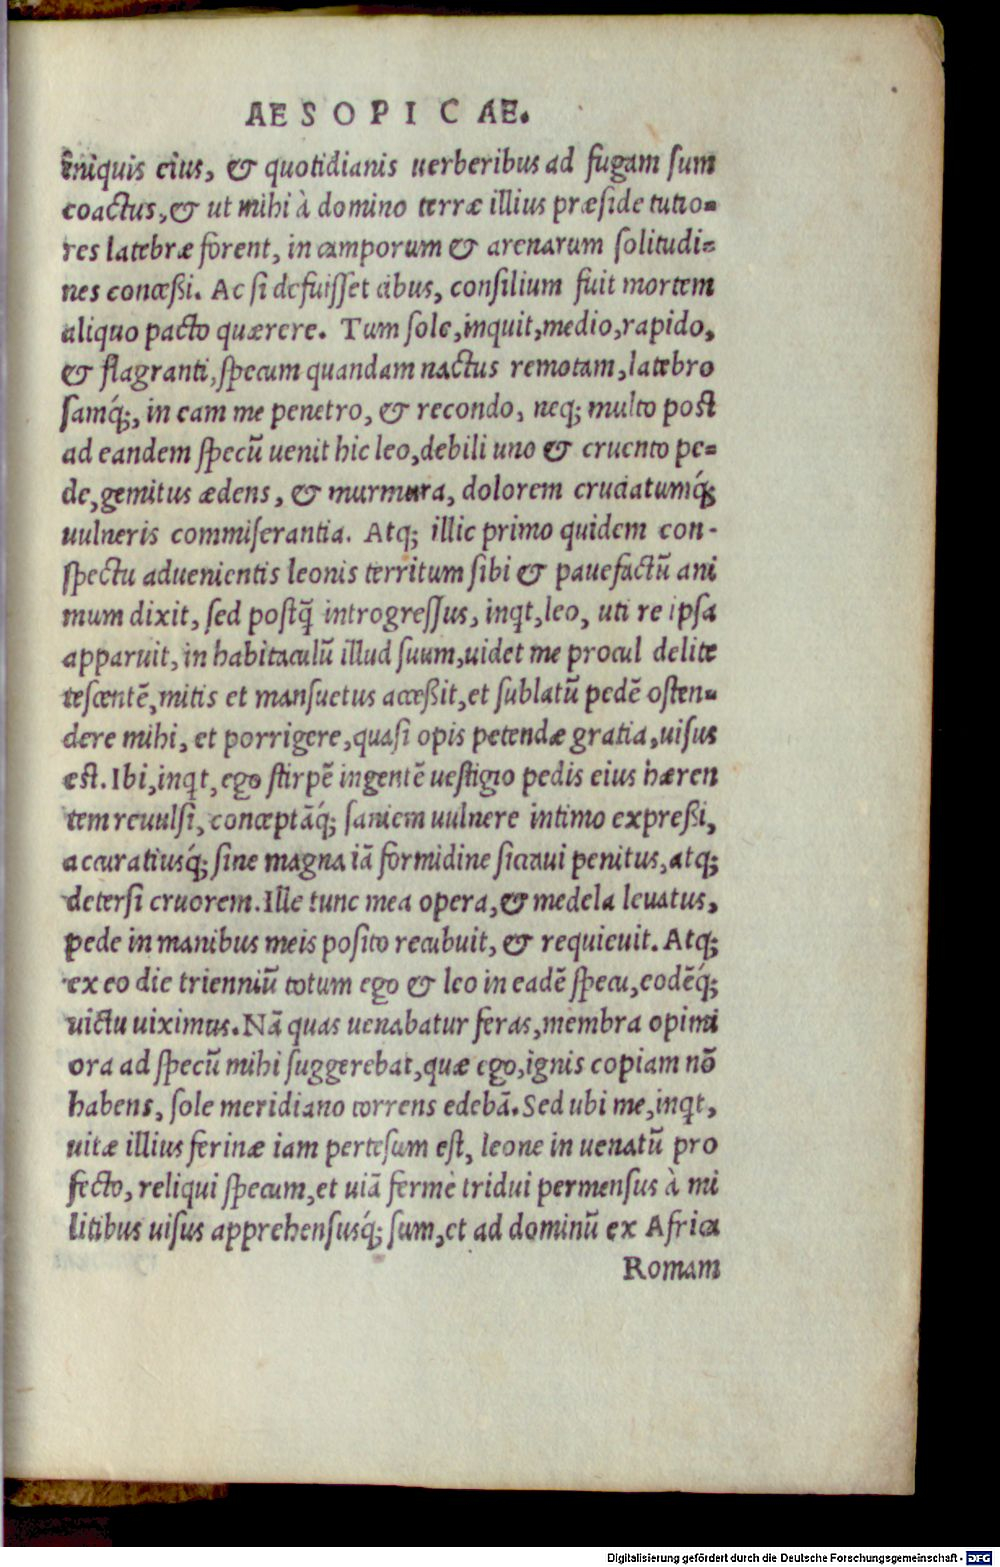 AESOPICAE.
iniquis eius, & quotidianis uerberibus ad fugam sum
coactus, & ut mihi à domino terræ illius præside tutio=
res latebræ forent, in camporum & arenarum solitudi=
nes concessi. Ac si defuisset cibus, consilium fuit mortem
aliquo pacto quærere. Tum sole, inquit, medio, rapido,
& flagranti, specum quandam nactus remotam, latebro
samq́;, in eam me penetro, & recondo, neq; multo post
ad eandem specũ uenit hic leo, debili uno & cruento pe=
de, gemitus ædens, & murmura, dolorem cruciatumq́;
uulneris commiserantia. Atq; illic primo quidem con-
spectu aduenientis leonis territum sibi & pauefactũ ani
mum dixit, sed postq̃ introgressus, inqt, leo, uti re ipsa
apparuit, in habitaculũ illud suum, uidet me procul delite
tescentẽ, mitis et mansuetus accessit, et sublatũ pedẽ osten=
dere mihi, et porrigere, quasi opis petendæ gratia, uisus
est. Ibi, inqt, ego stirpẽ ingentẽ uestigio pedis eius hæren
tem reuulsi, conceptãq́; saniem uulnere intimo expressi,
accuratiusq́; sine magna iã formidine siccaui penitus, atq;
detersi cruorem. Ille tunc mea opera, & medela leuatus,
pede in manibus meis posito recubuit, & requieuit. Atq;
ex eo die trienniũ totum ego & leo in eadẽ specu, eodẽq́;
uictu uiximus. Nã quas uenabatur feras, membra opimi
ora ad specũ mihi suggerebat, quæ ego, ignis copiam nõ
habens, sole meridiano torrens edebã. Sed ubi me, inqt,
uitæ illius ferinæ iam pertesum est, leone in uenatũ pro
fecto, reliqui specum, et uiã ferme tridui permensus à mi
litibus uisus apprehensusq́; sum, et ad dominũ ex Africa
Romam
Digitalisierung gefördert durch die Deutsche Forschungsgemeinschaft - DFG